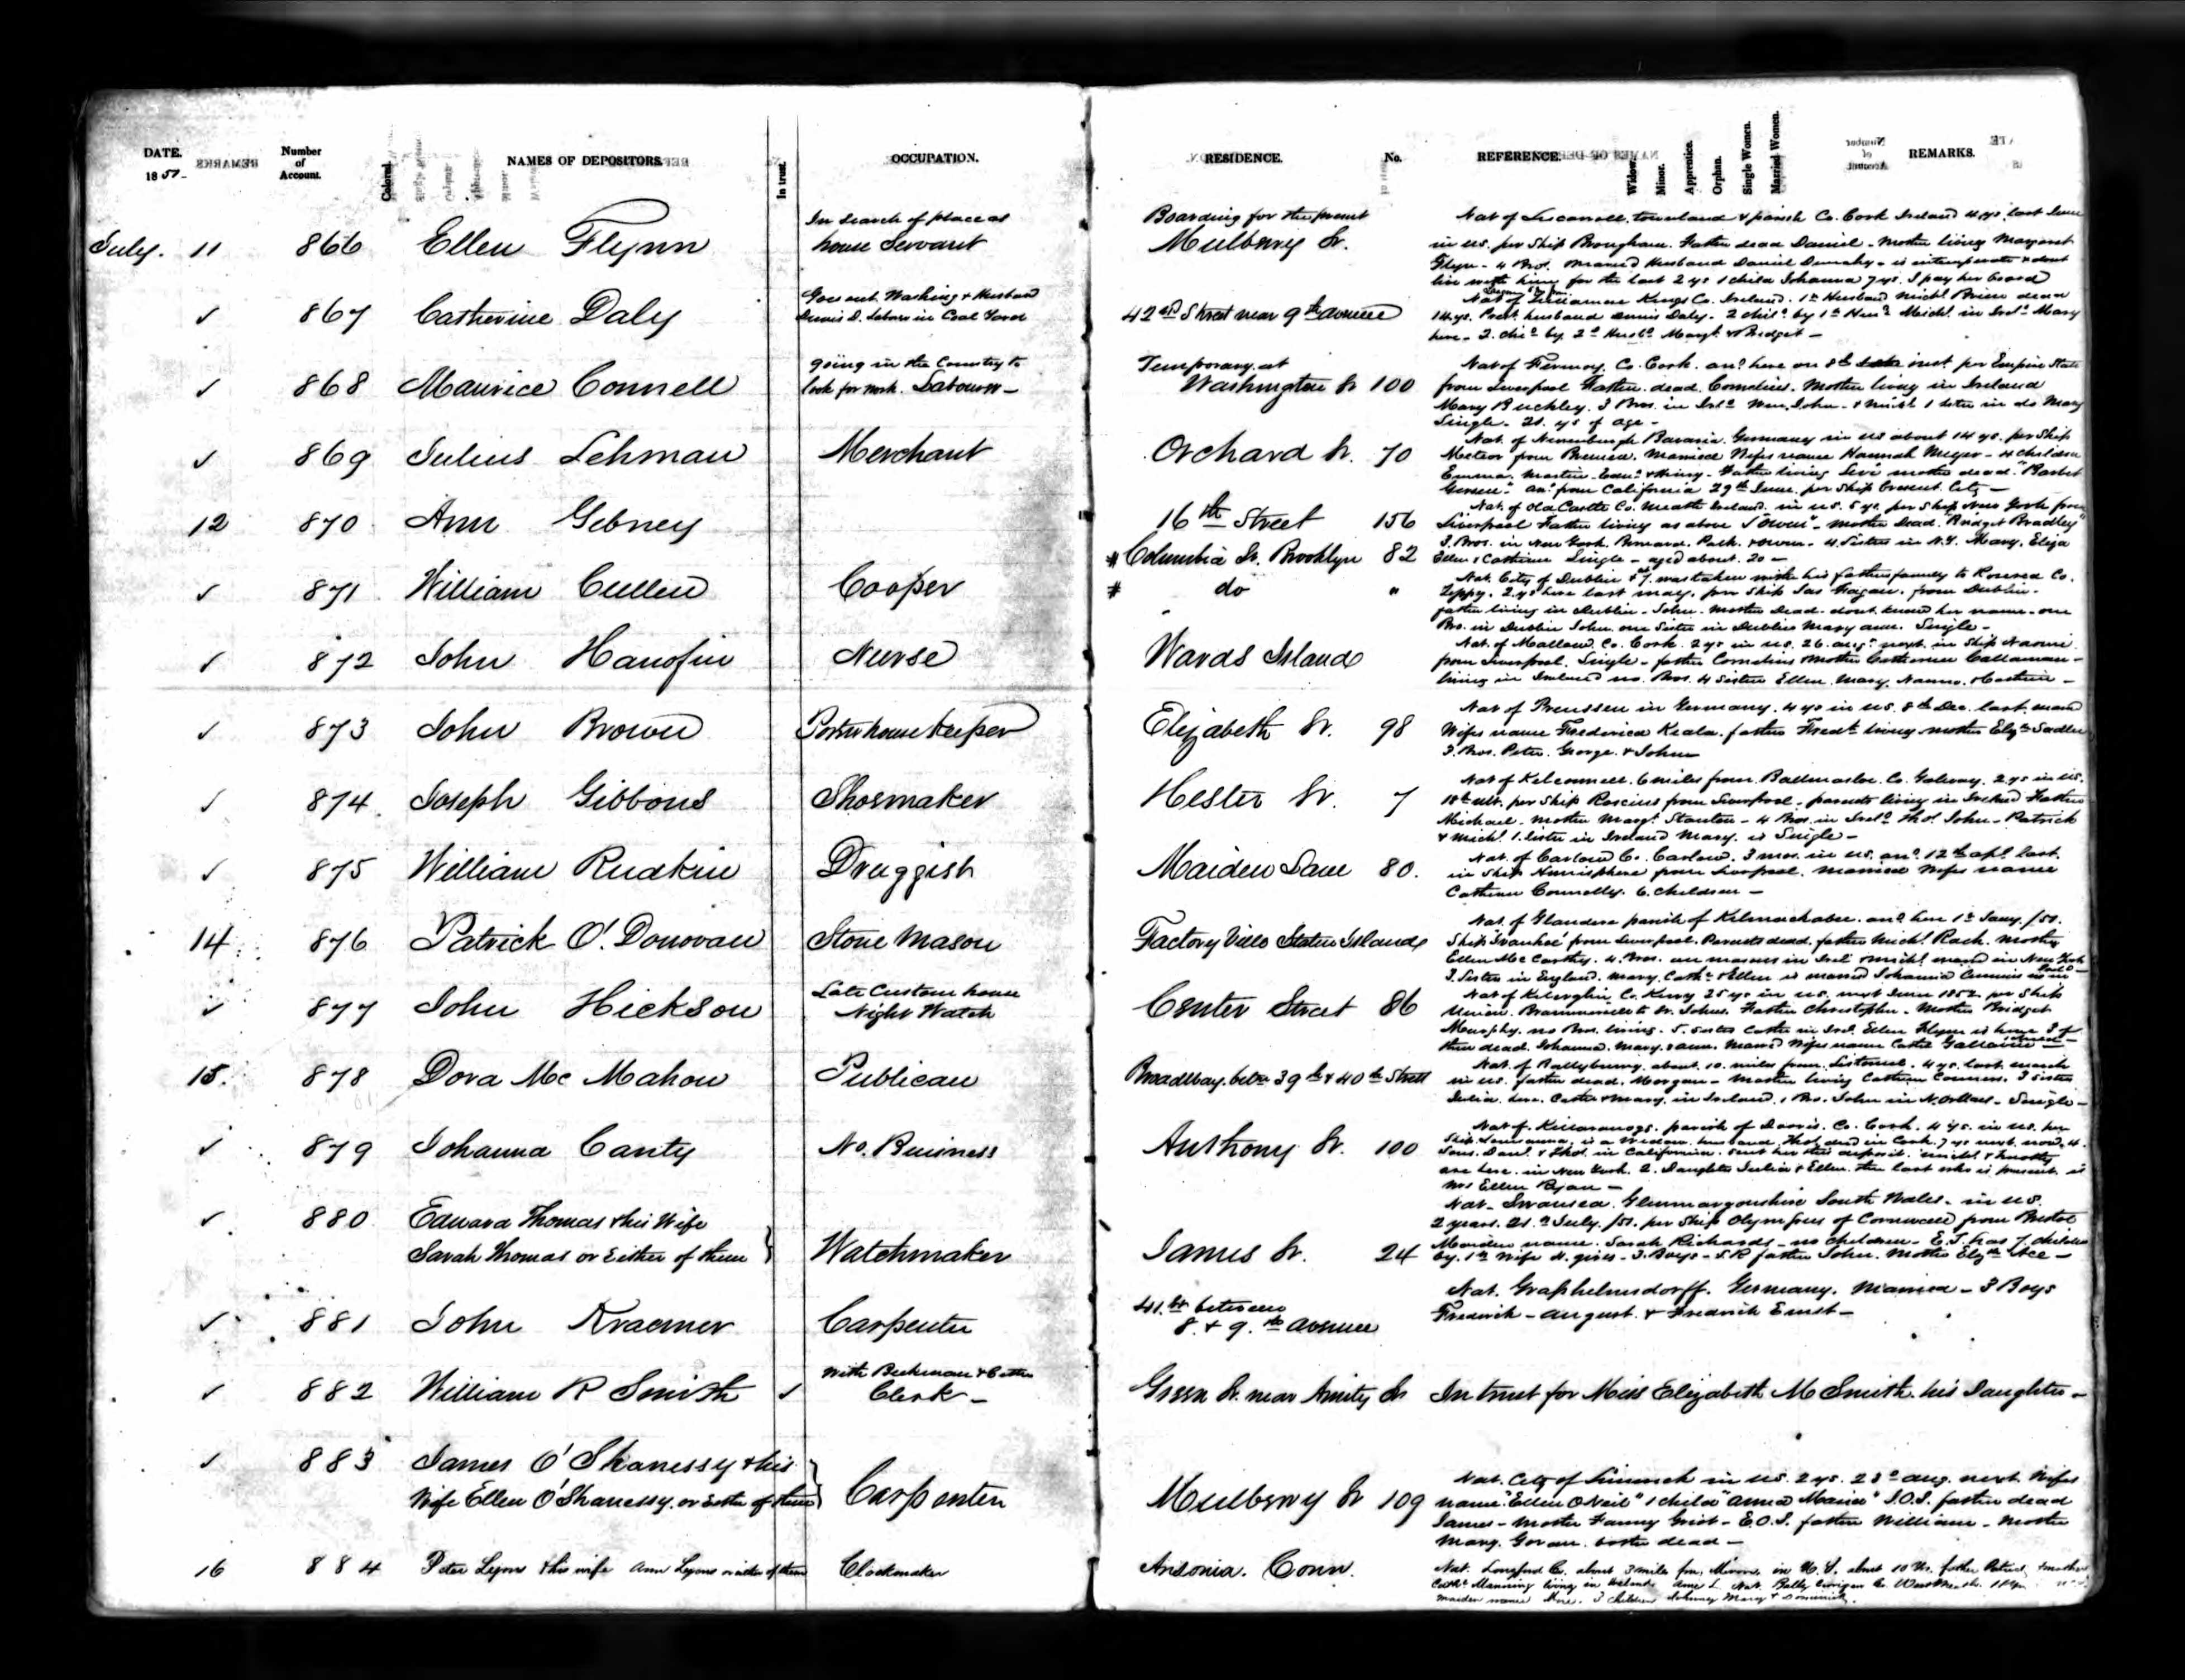 DATE. Number of Account. Colored. NAMES OF DEPOSITORS. In trust. OCCUPATION. RESIDENCE. No. REFERENCE. Widow. Minor. Apprentice. Orphan. Single Women. Married Women. REMARKS.
1851
July. 11 866 Ellen Flynn
In search of place as
house Servant
Boarding for the present
Mulberry St.
townland & parish Co. Cork Ireland 4 yrs last June
in US. per Ship Brougham. Father dead Daniel - Mother living Margaret
Flynn - 4 Bros. Married Husband Daniel - is intemperate & dont
live with him for the last 2 yrs 1 child Johanna 7 yrs. I pay her board
✓ 867 Catherine Daly
Goes out Washing & Husband
Dennis D. Laborer in Coal Yard
42nd Street near 9th Avenue
Nat of Kings Co. Ireland. 1st Husband Michl Brien dead
14 yrs. Prest. husband Dennis Daly. 2 chiln by 1st Husd Michl in Ireld Mary
here - 2. chiln by 2d Husbd Margt & Bridget -
✓ 868 Maurice Connell
going in the Country to
look for work. Labourer -
Temporary at
Washington St 100
Nat of Fermoy, Co. Cork. and here on 8th inst. per Empire State
from Liverpool Father dead. Cornelius. Mother living in Ireland
Mary Buckley. 3 Bros. in Ireld Wm, John - & Michl 1 Sister in do Mary
Single - 21. yrs of age -
✓ 869 Julius Lehman
Merchant
Orchard St. 70
Nat. of Bavaria. Germany in US about 14 yrs. per Ship
Meteor from Bremen. Married Wifes name Hannah Meyer - 4 children
Emma, Martin - & Henry - Father living Levi mother dead. "Barbet
from California 29th June. per Ship Crescent City -
12 870 Ann Gebney
16th Street 156
# Columbia St. Brooklyn 82
Nat. of Old Castle Co. Meath Ireland. in US. 5 yrs. per Ship New York from
Liverpool Father living as above "Owen" - mother Dead. "Bridget Bradley"
3. Bros. in New York. Bernard. Patk. & Owen - 4 Sisters in N.Y. Mary, Eliza
Ellen & Catherine Single - aged about. 20 -
✓ 871 William Cullen
Cooper
# do "
Nat. City of Dublin was taken with his fathers family to Co.
2 yrs here last may. per Ship Jas Fagan. from Dublin -
father living in Dublin - John. Mother Dead - dont know her name - one
Bro. in Dublin John. one Sister in Dublin Mary ann. Single -
✓ 872 John Hanofin
Nurse
Wards Island
Nat. of Mallow, Co. Cork. 2 yrs in US. 26. augt next. in Ship Naomi
from Liverpool. Single - father Cornelius Mother Catherine Callaman -
living in Ireland no Bros. 4 Sisters Ellen. Mary. -
✓ 873 John Brown
Porterhouse Keeper
Elizabeth St. 98
Nat of Preussen in Germany. 4 yrs in US. 8th Dec. last. mard
Wifes name Frederica Keala. father Fredk living mother Elizth Sadler
3. Bros. Peter. George. & John
✓ 874 Joseph Gibbons
Shoemaker
Hester St. 7
Nat of Kilconnell. 6 miles from Co. Galway. 2 yrs in US.
18th ult. per Ship Roscius from Liverpool - parents living in Ireland Father
Michael. Mother Margt Stanton - 4 Bros. in Ireld Thos John - Patrick
& Michl. 1. Sister in Ireland Mary. is Single -
✓ 875 William Rudkin
Druggist
Maiden Lane 80.
Nat. of Carlow Co. Carlow. 3 mos. in US. 12th apl last.
in Ship Hemisphere from Liverpool. Married Wifes name
Catherine Connolly. 6. children -
14 876 Patrick O'Donovan
Stone Mason
Factory Ville Staten Island
Nat. of Glandore parish of Kilmachabea. here 1st Jany /50.
Ship Ivanhoe from Liverpool. Parents dead. father Michl. Rach. mother
Ellen McCarthy. 4. Bros. masons in Ireld & Michl. mard in New York
3. Sisters in England. Mary, Cathe & Ellen is married Johanna
✓ 877 John Hickson
Late Custom house
Night Watch
Center Street 86
Nat of Co. Kerry 25 yrs in US. next June 1852 per Ship
Union. to St. Johns. Father Christopher - Mother Bridget
Murphy. no Bros. living. 5. Sisters Cathe in Ireld. Ellen Flynn is here 3 of
them dead. Johanna. Mary. & ann. Married Wifes name Cathe
15. 878 Dora Mc Mahon
Publican
Broadway betn 39th & 40th Street
Nat. of Ballybunny. about. 10. miles from. Listowel. 4 yrs last march
in US. father dead. Morgan - Mother living Catherine Connors. 3 Sisters
Julia. here. Cathe & Mary. in Ireland. 1 Bro. John in N. Orleans - Single -
✓ 879 Johanna Canty
No. Business
Anthony St. 100
Nat of. parish of Co. Cork. 4 yrs. in US. per
Ship is a Widow. husband Thos. died in Cork. 7 yrs next 4.
Sons. Danl. & Thos. in California - sent her this deposit. Michl & Timothy
are here. in New York. 2. Daughters Julia & Ellen. the last who is present. is
Mrs Ellen Ryan -
✓ 880 Edward Thomas & his Wife
Sarah Thomas or Either of them }
Watchmaker
James St. 24
Nat - Swansea. Glenmargonshire South Wales - in US.
2 years. 21. July. /51. per Ship Olympus of Cornwall from Bristol
Maiden name. Sarah Richards - no children - E.T. has 7. children
by. 1st Wife 4. girls - 3. Boys - S.R father John. Mother Elizth -
✓ 881 John Kraemer
Carpenter
41.st between
8. & 9.th avenue
Nat. Graphelmsdorff. Germany. Married - 3 Boys
Frederick - August. & Fredrick Ernst -
✓ 882 William R Smith ✓
With Beekman &
Clerk -
Green St. near Amity St
In trust for Miss Elizabeth M Smith. his Daughter -
✓ 883 James O'Shanessy & his
Wife Ellen O'Shanessy. or Either of them }
Carpenter
Mulberry St 109
Nat. City of Limerick in US. 2 yrs. 28d aug. next. Wifes
name "Ellen O Neil" 1 child "anna Maria" J.O.S. father dead
James - Mother Fanny Grist - E.O.S. father William - Mother
Mary. both dead -
16 884 Peter Lyons & his wife Ann Lyons or either of them
Clockmaker
Ansonia. Conn.
Nat. Longford Co. about 3 miles from in N.Y. about 10 father Patrick mother
Cathe Manning living in Ireland Ann L Nat. Bally Co. WestMeath.
maiden name 3 children Johnny Mary & Dominick.